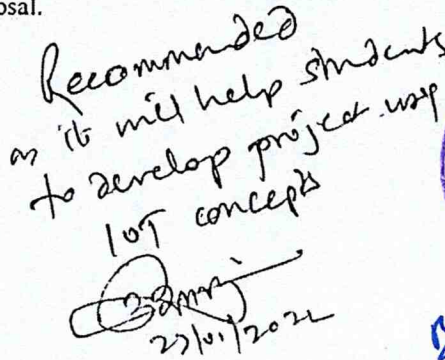 osal.
Recommended
as it will help students
to develop project using
IOT concepts
27/01/2022